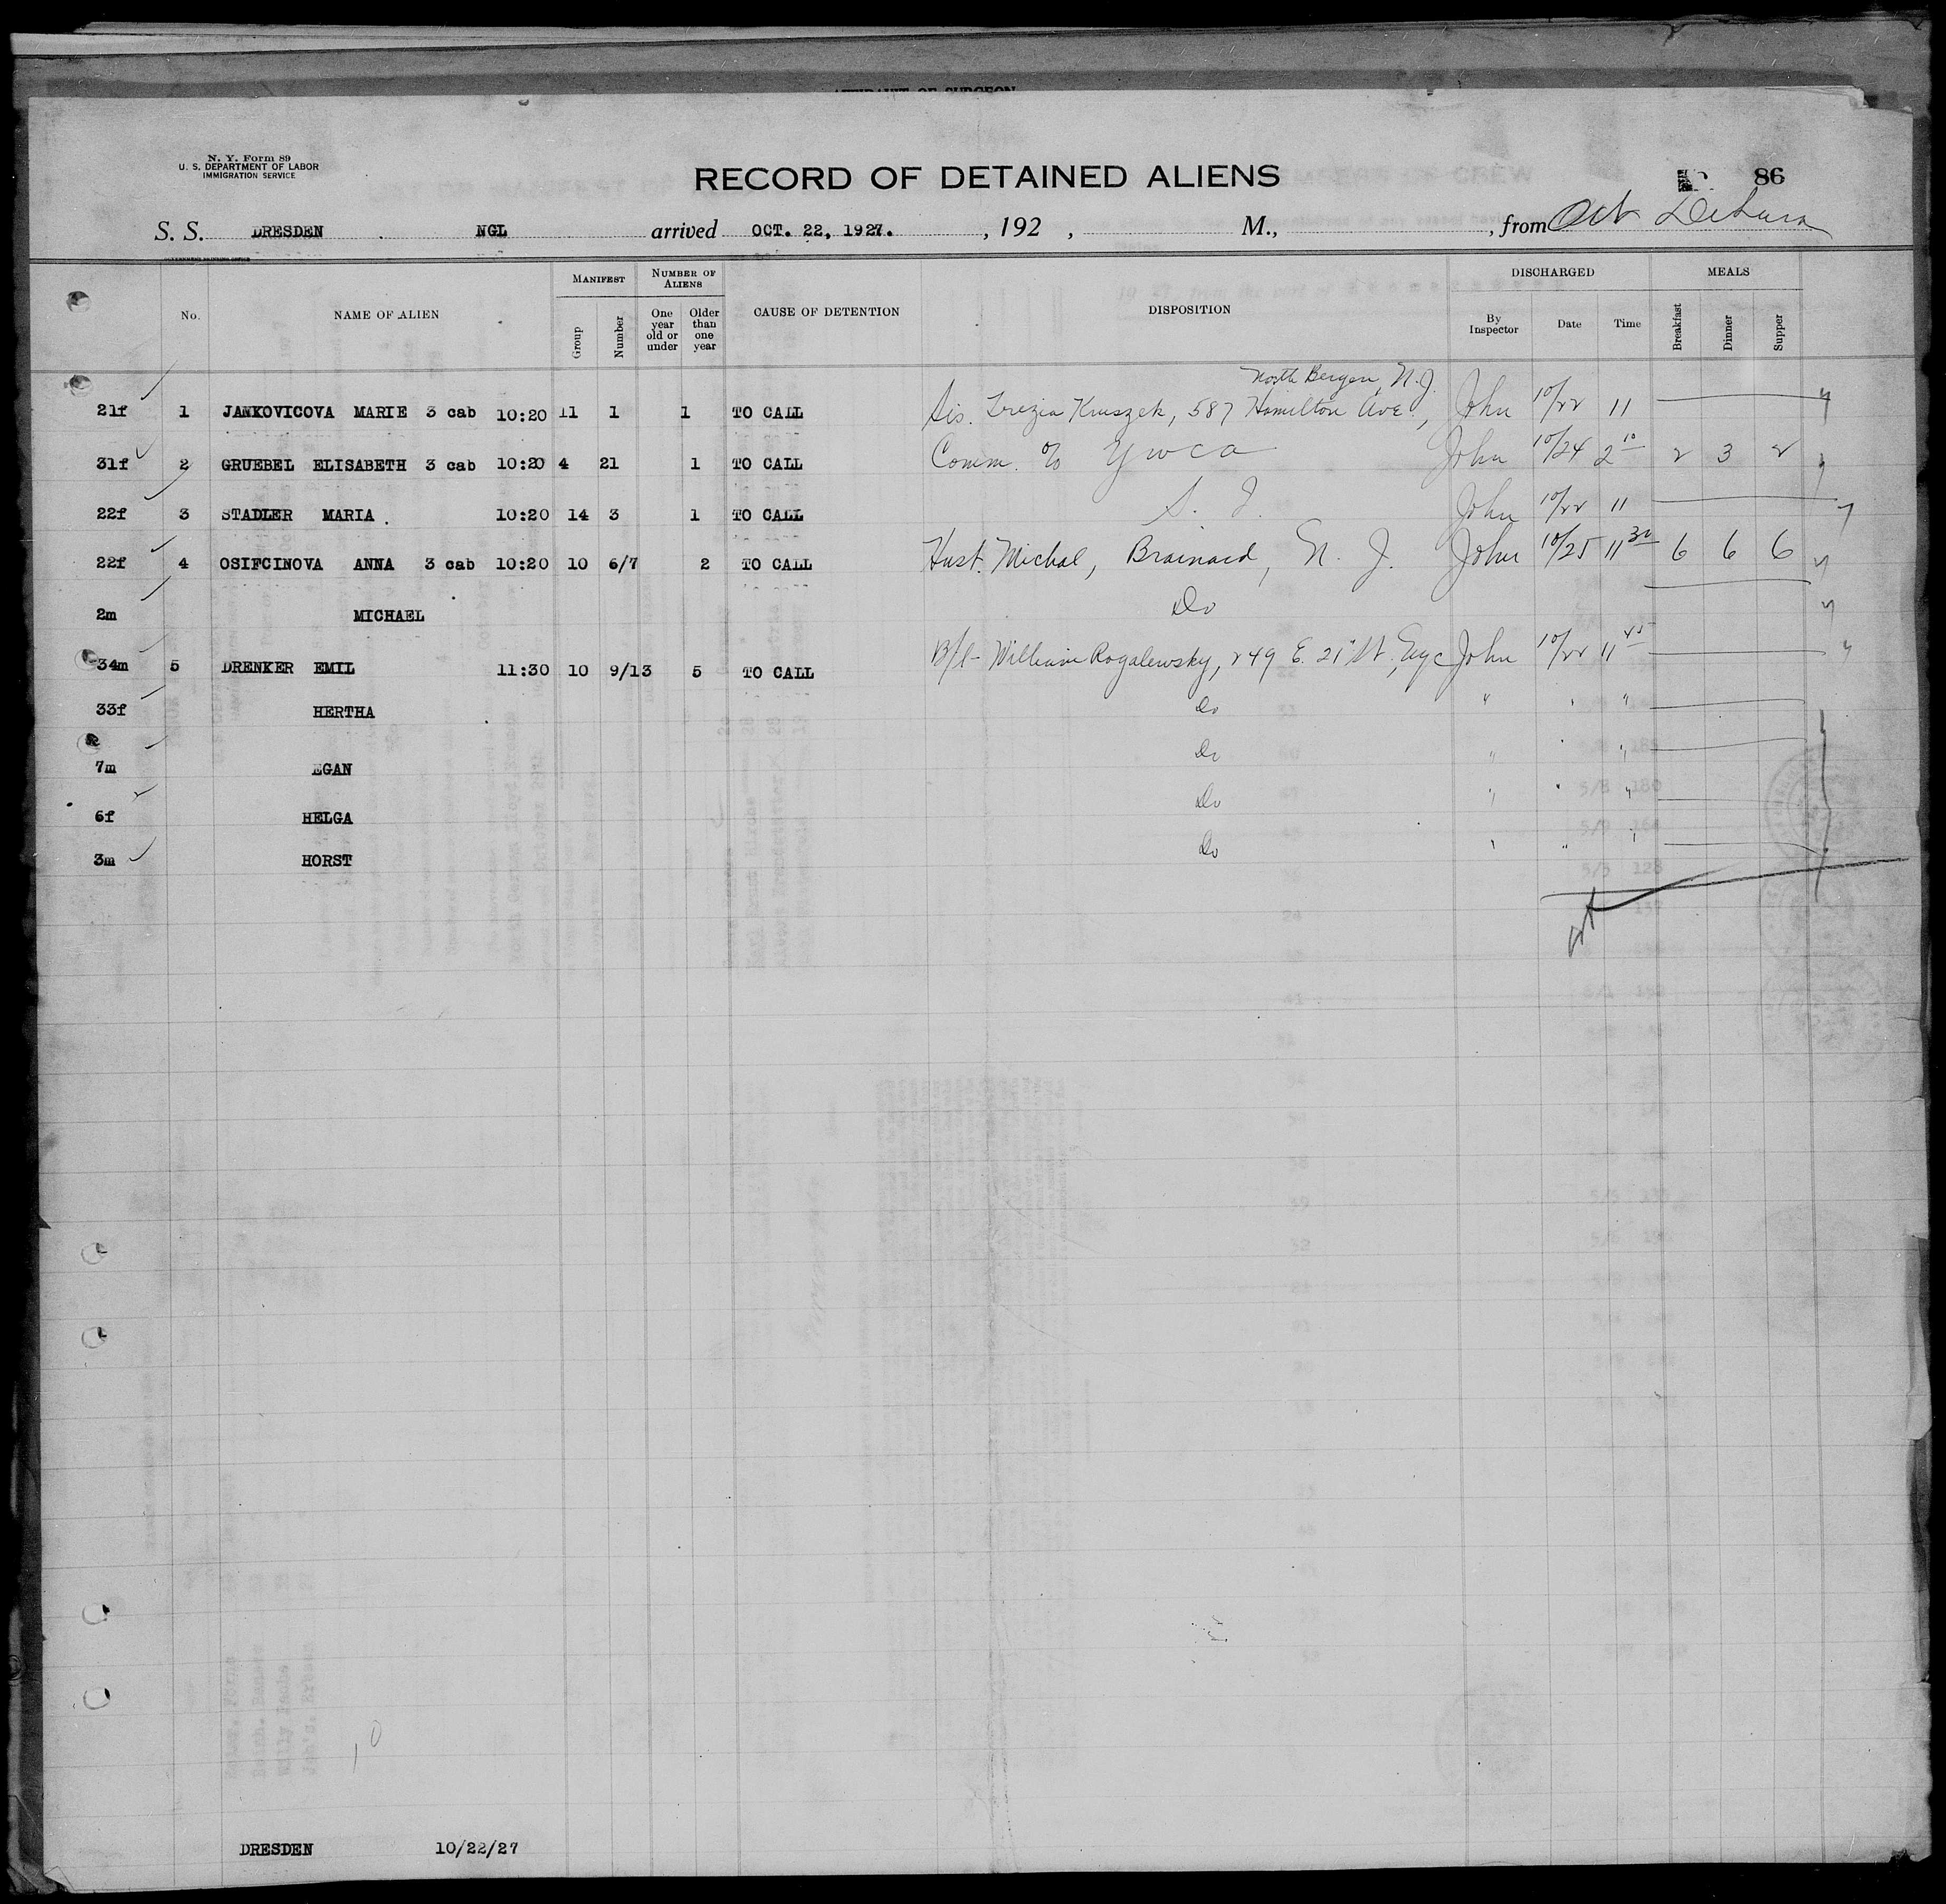 AFFIDAVIT OF SURGEON
N. Y. Form 89
U. S. DEPARTMENT OF LABOR
IMMIGRATION SERVICE
RECORD OF DETAINED ALIENS
86
S. S. DRESDEN NGL arrived OCT. 22, 1927. , 192 , M., , from Oct
GOVERNMENT PRINTING OFFICE
No. NAME OF ALIEN MANIFEST NUMBER OF ALIENS CAUSE OF DETENTION DISPOSITION DISCHARGED MEALS
Group Number One year old or under Older than one year By Inspector Date Time Breakfast Dinner Supper
North Bergen, N.J.
21f 1 JANKOVICOVA MARIE 3 cab 10:20 11 1 1 TO CALL Sis. Trezia Kruszek, 587 Hamilton Ave., John 10/22 11
31f 2 GRUEBEL ELISABETH 3 cab 10:20 4 21 1 TO CALL Comm. % YWCA John 10/24 2 10 2 3 2
22f 3 STADLER MARIA . 10:20 14 3 1 TO CALL S. I. John 10/22 11
22f 4 OSIFCINOVA ANNA 3 cab 10:20 10 6/7 2 TO CALL Husb. Michal, Brainard, N. J. John 10/25 11 30 6 6 6
2m MICHAEL Do
34m 5 DRENKER EMIL 11:30 10 9/13 5 TO CALL B/l- William Rogalewsky, 249 E. 21" St., NYC John 10/22 11 45
33f HERTHA Do " " "
7m EGAN Do " " "
6f HELGA Do " " "
3m HORST Do " " "
10
DRESDEN 10/22/27